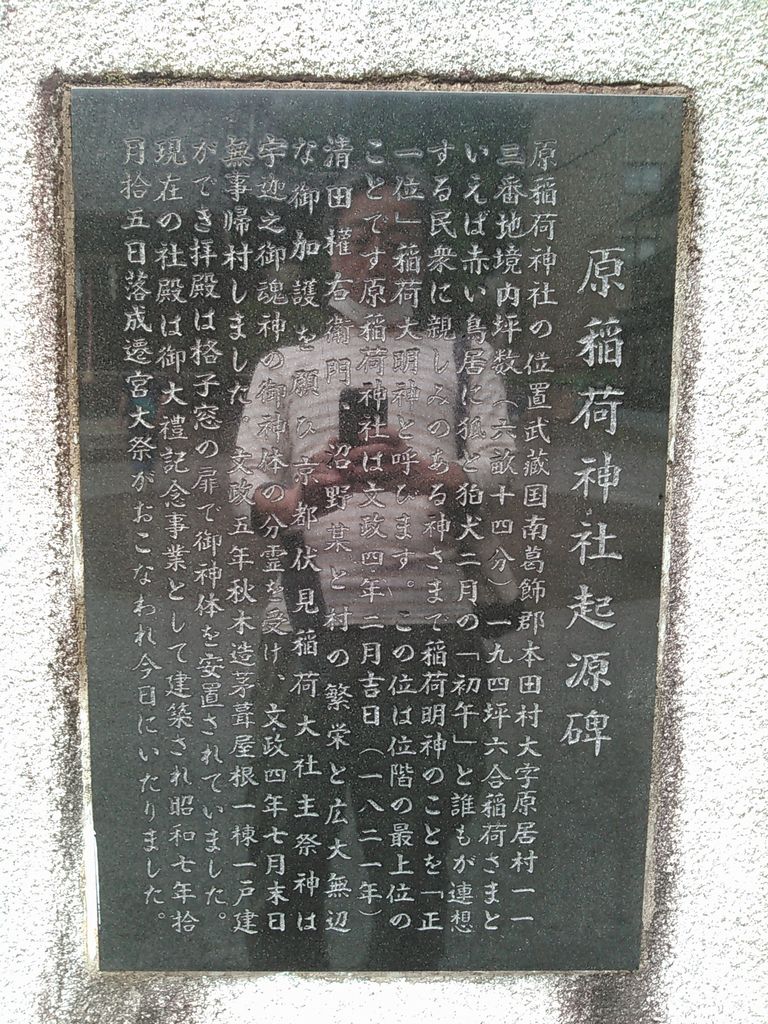 原稲荷神社起源碑
原稲荷神社の位置武蔵国南葛飾郡本田村大字原居村一一
三番地境内坪数(六畝十四分)一九四坪六合稲荷さまと
いえば赤い鳥居に狐と狛犬二月の「初午」と誰もが連想
する民衆に親しみのある神さまで稲荷明神のことを「正
一位」稲荷大明神と呼びます。この位は位階の最上位の
ことです原稲荷神社は文政四年二月吉日(一八二一年)
清田權右衛門、沼野某と村の繁栄と広大無辺
な御加護を願ひ京都伏見稲荷大社主祭神は
宇迦之御魂神の御神体の分霊を受け、文政四年七月末日
無事帰村しました 文政五年秋木造茅葺屋根一棟一戸建
ができ拝殿は格子窓の扉で御神体を安置されていました。
現在の社殿は御大禮記念事業として建築され昭和七年拾
月拾五日落成遷宮大祭がおこなわれ今日にいたりました。